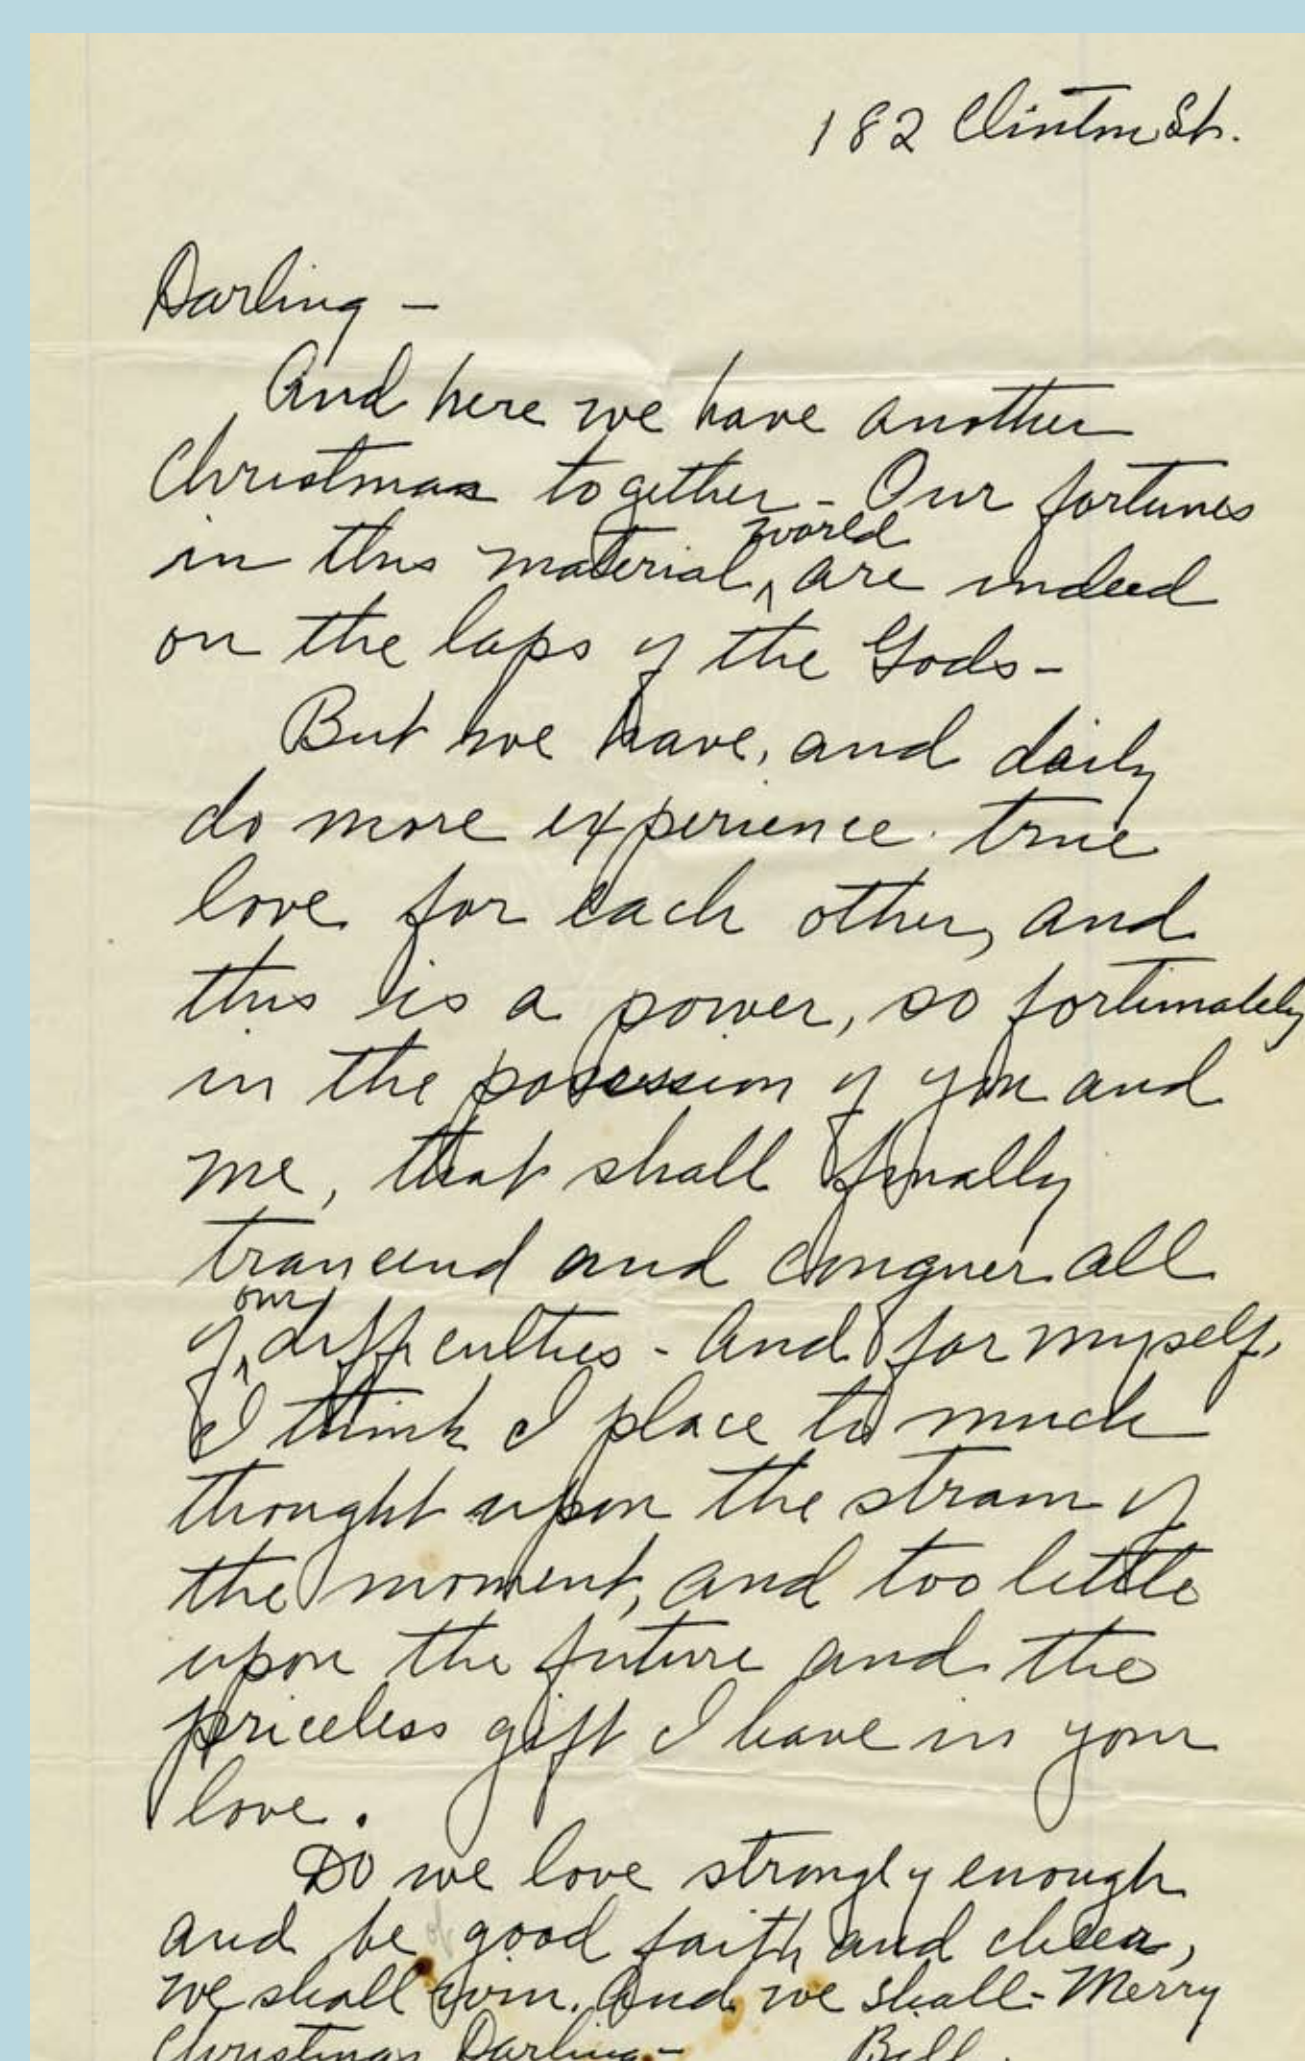 182 Clinton St.
Darling -
And here we have another
Christmas together - Our fortunes
in this material world are indeed
on the laps of the Gods -
But we have, and daily
do more experience true
love for each other, and
this is a power, so fortunately
in the posession of you and
me, that shall finally
trancend and conquer all
of our difficulties - And for myself,
I think I place to much
thought upon the strain of
the moment, and too little
upon the future and the
priceless gift I have in your
love.
Do we love strongly enough
and be of good faith and cheer,
we shall win. And we shall - Merry
Christmas Darling -
Bill.